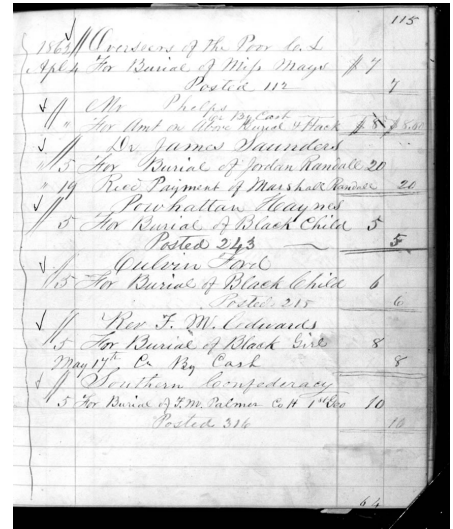 115
1862 Overseers of the Poor Co. L
Apl 4 For Burial of Miss Mays $ 7
Posted 112 7
Mr Phelps
By Cash
" For Amt on Above Burial & Hack $ 8
Dr. James Saunders
" 5 For Burial of Jordan Randall 20
" 19 Recd Payment of Marshall Randall 20
Powhattan Haynes
5 For Burial of Black Child 5
Posted 243 5
Culvin Ford
5 For Burial of Black Child 6
Posted 218 6
Rev J. W. Edwards
5 For Burial of Black Girl 8
May 17th Cr By Cash 8
Southern Confederacy
5 For Burial of J. M. Palmer Co H 1st Geo 10
Posted 316 10
64